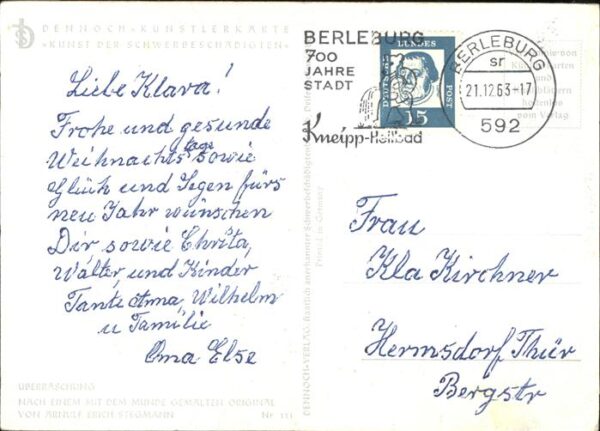 DENNOCH-KÜNSTLERKARTE
»KUNST DER SCHWERBESCHÄDIGTEN«
Liebe Klara!
Frohe und gesunde
Weihnachtstage sowie
Glück und Segen fürs
neu Jahr wünschen
Dir sowie Christa,
Walter und Kinder
Tante Anna, Wilhelm
u Familie
Oma Else
ÜBERRASCHUNG
NACH EINEM MIT DEM MUNDE GEMALTEN ORIGINAL
VON ARNULF ERICH STEGMANN
DENNOCH-VERLAG
Printed in Germany
BERLEBURG
700
JAHRE
STADT
Kneipp-Heilbad
DEUTSCHE
BUNDES
POST
15
BERLEBURG
21.12.63-17
592
Frau
Kla Kirchner
Hermsdorf Thür
Bergstr